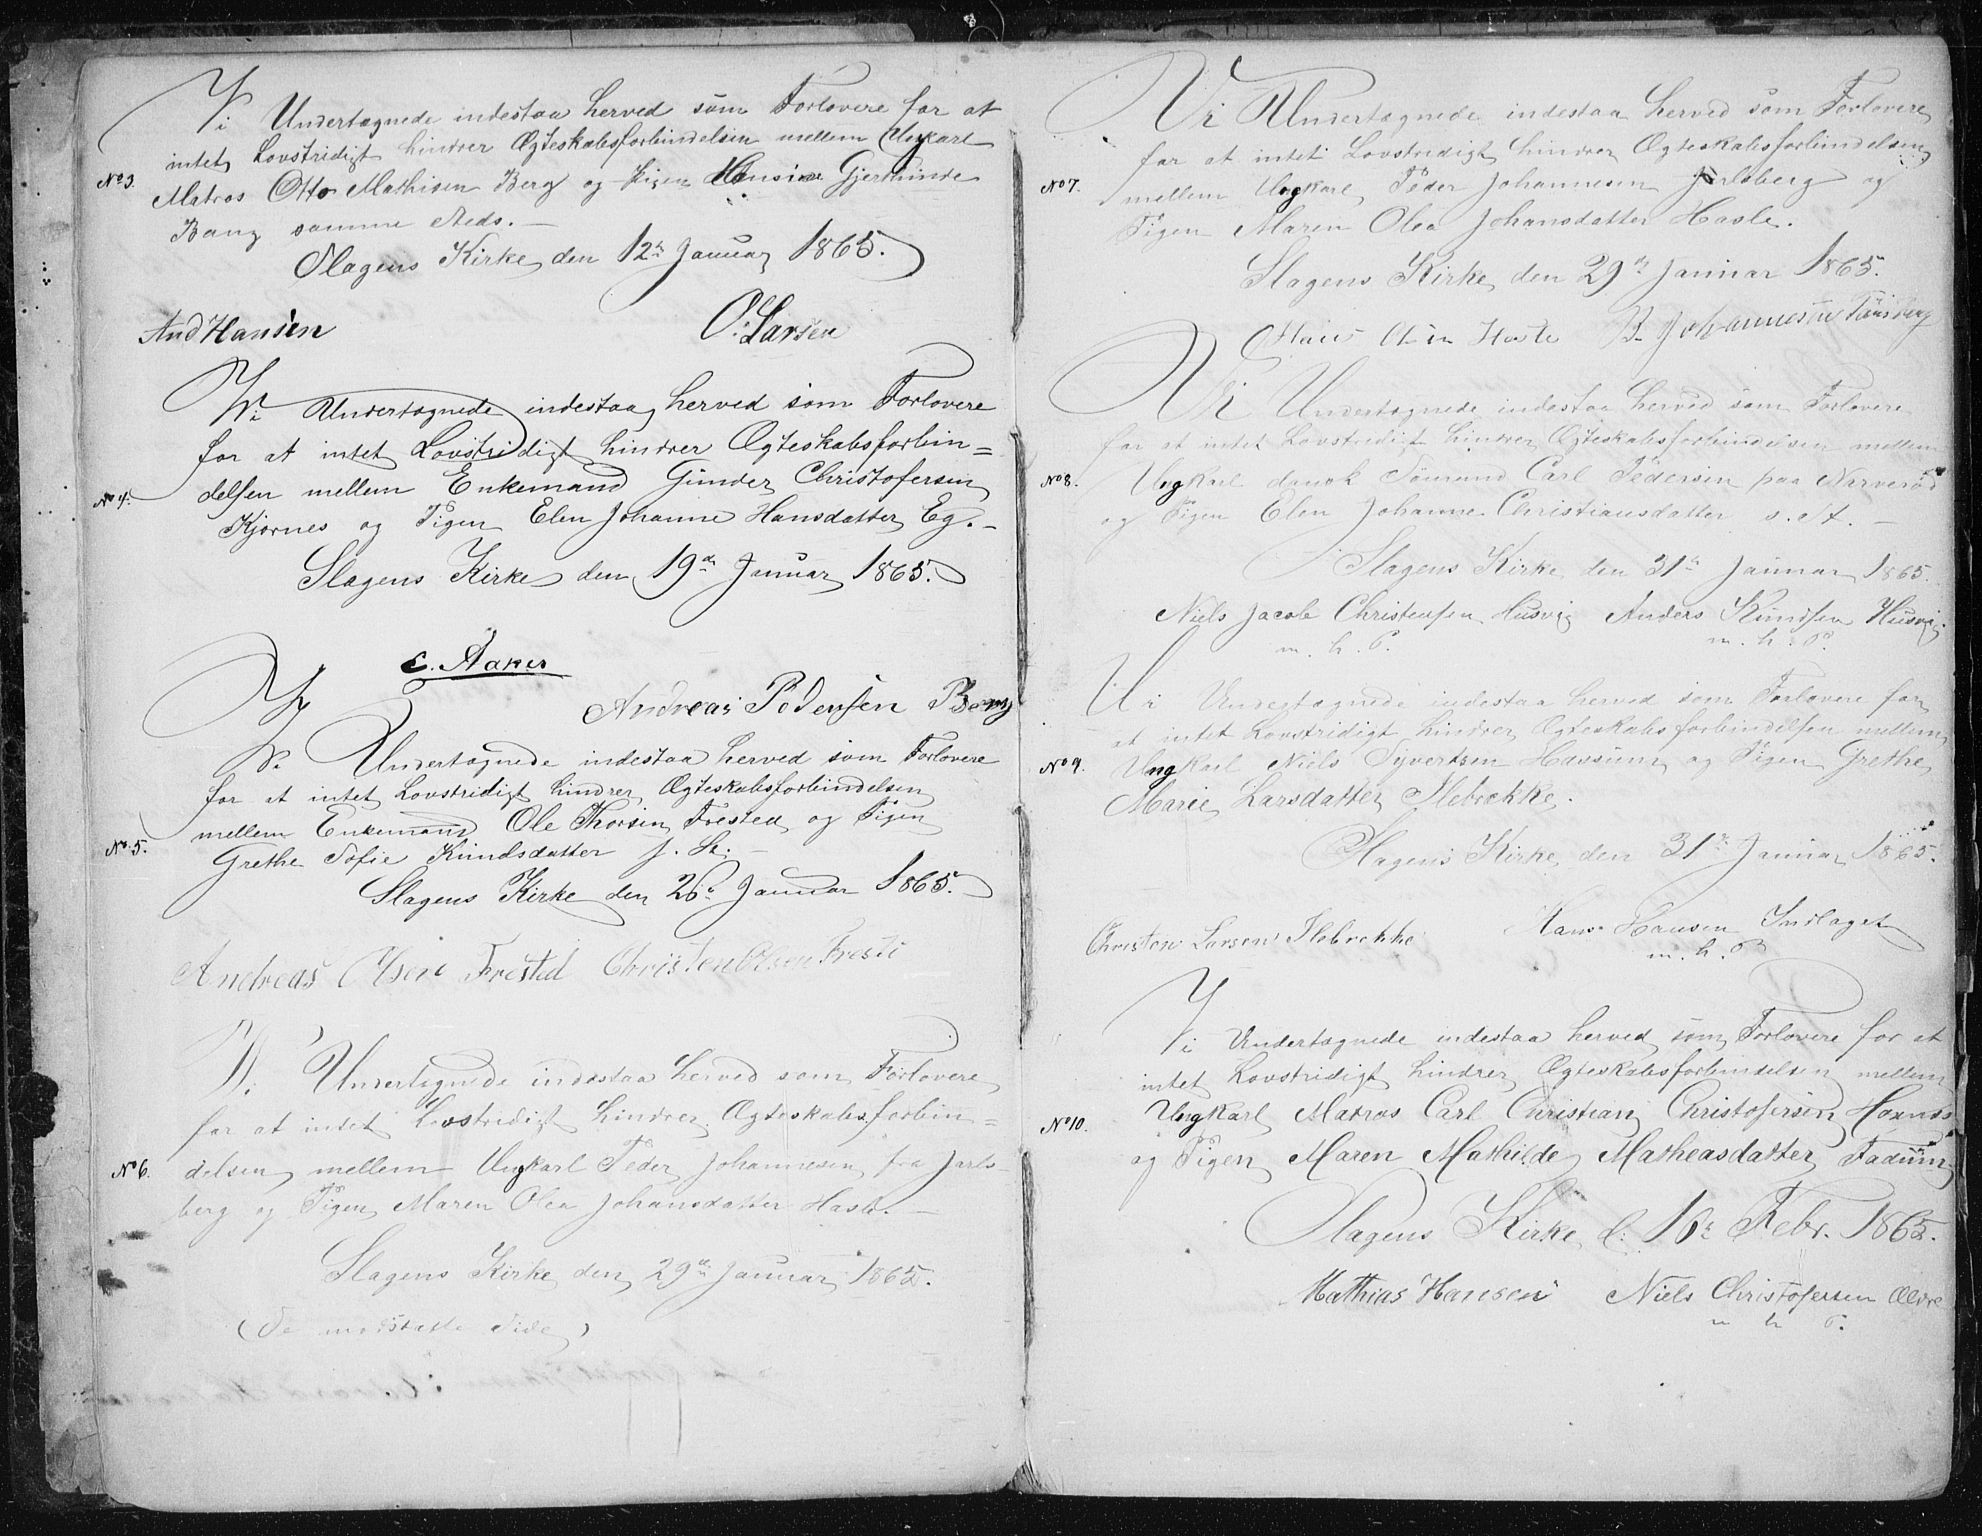 Vi Undertegnede indestaa herved som Forlovere for at
intet Lovstridigt hindrer Ægteskabsforbindelsen mellem Ungkarl
No 3.
Matros Otto Mathisen Berg og Pigen Hansine Gjerthinde
Bang samme Steds.
Slagens Kirke den 12te Januar 1865.
And Hansen O. Larsen
Vi Undertegnede indestaa herved som Forlovere
for at intet Lovstridigt hindrer Ægteskabsforbin=
No 4.
delsen mellem Enkemand Gunder Christofersen
Kjørnes og Pigen Elen Johanne Hansdatter Eg.
Slagens Kirke den 19de Januar 1865.
C. Aaker
Andreas Pedersen Berg
Vi Undertegnede indestaa herved som Forlovere
for at intet Lovstridigt hindrer Ægteskabsforbindelsen
mellem Enkemand Ole Thorsen Frested og Pigen
No 5.
Grethe Sofie Knudsdatter s. St.
Slagens Kirke den 26e Januar 1865.
Andreas Olsen Frestid Christen Olsen Fresti
Vi Undertegnede indestaa herved som Forlovere
for at intet Lovstridigt hindrer Ægteskabsforbin=
No 6.
delsen mellem Ungkarl Peder Johannesen fra Jarls-
berg og Pigen Maren Olea Johansdatter Hasle.
Slagens Kirke den 29de Januar 1865.
(Se modstaaende Side)
Vi Undertegnede indestaa herved som Forlovere
for at intet Lovstridigt hindrer Ægteskabsforbindelsen
No 7.
mellem Ungkarl Peder Johannesen Jarlsberg og
Pigen Maren Olea Johansdatter Hasle.
Slagens Kirke den 29de Januar 1865.
Hans Olsen Hasle B. Johannesen Tønsberg
Vi Undertegnede indestaa herved som Forlovere
for at intet Lovstridigt hindrer Ægteskabsforbindelsen mellem
No 8.
Ungkarl dansk Sømand Carl Pedersen paa Narverød
og Pigen Elen Johanne Christiansdatter s. St.
Slagens Kirke den 31te Januar 1865.
Niels Jacob Christensen Husvig Anders Knudsen Husvig
m. h. P. m. h. P.
Vi Undertegnede indestaa herved som Forlovere for
at intet Lovstridigt hindrer Ægteskabsforbindelsen mellem
No 9.
Ungkarl Niels Syvertsen Havsum og Pigen Grethe
Marie Larsdatter Ilebrekke.
Slagens Kirke den 31te Januar 1865.
Christen Larsen Ilebrekke Hans Hansen Indlaget
m. h. P
Vi Undertegnede indestaa herved som Forlovere for at
intet Lovstridigt hindrer Ægteskabsforbindelsen mellem
No 10.
Ungkarl Matros Carl Christian Christofersen
og Pigen Maren Mathilde Matheasdatter Fadum
Slagens Kirke d. 16e Febr. 1865.
Mathias Hansen Niels Christofersen
m h P.